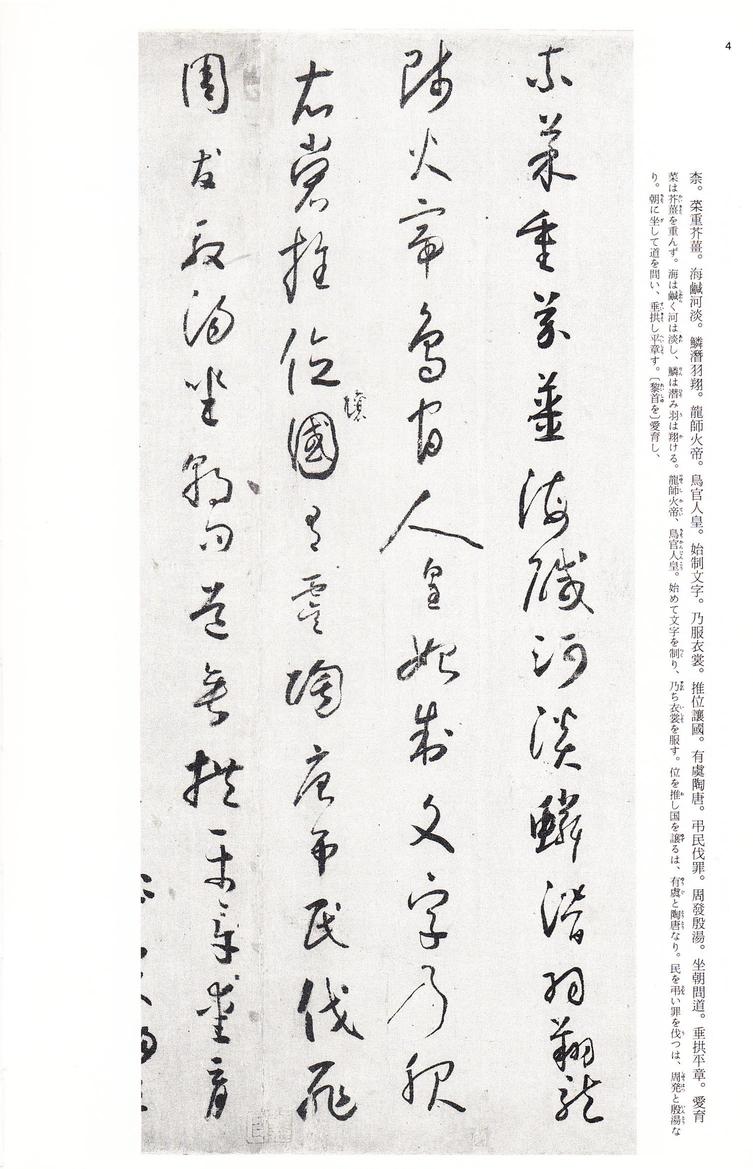 4
柰。菜重芥薑。海鹹河淡。鱗潛羽翔。龍師火帝。鳥官人皇。始制文字。乃服衣裳。推位讓國。有虞陶唐。弔民伐罪。周發殷湯。坐朝問道。垂拱平章。愛育
菜は芥薑を重んず。海は鹹く河は淡し、鱗は潜み羽は翔ける。龍師火帝、鳥官人皇。始めて文字を制り、乃ち衣裳を服す。位を推し国を譲るは、有虞と陶唐なり。民を弔い罪を伐つは、周発と殷湯な
り。朝に坐して道を問い、垂拱し平章す。〔黎首を〕愛育し、
柰菜重芥薑海鹹河淡鱗潛羽翔龍
師火帝鳥官人皇始制文字乃服
衣裳推位國有虞陶唐弔民伐罪
讓
周發殷湯坐朝問道垂拱平章愛育